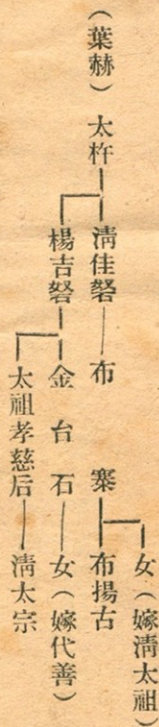 (葉赫)
太杵
淸佳砮
布寨
女(嫁淸太祖)
布揚古
楊吉砮
金台石
女(嫁代善)
太祖孝慈后
淸太宗